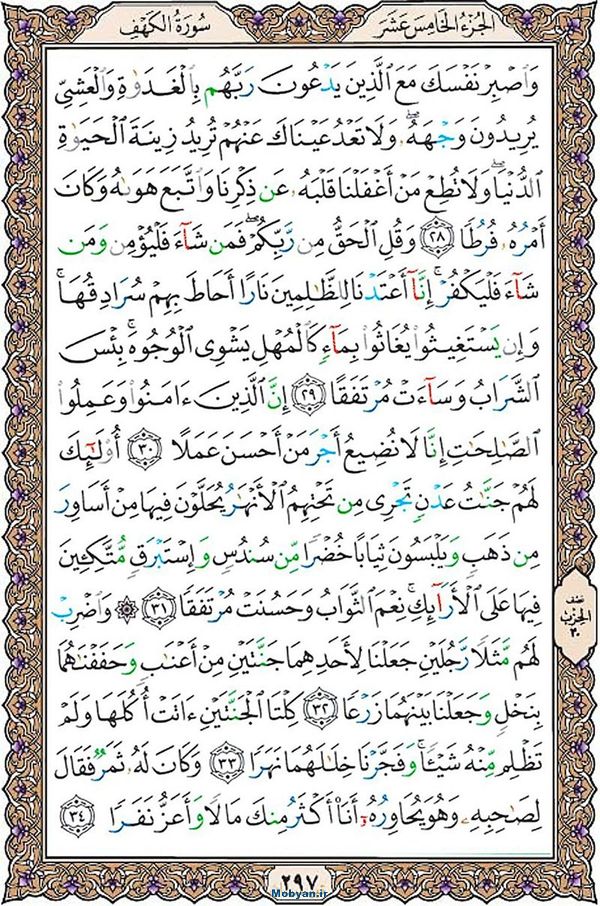 الجزء الخامس عشر
سورة الكهف
وَٱصْبِرْ نَفْسَكَ مَعَ ٱلَّذِينَ يَدْعُونَ رَبَّهُم بِٱلْغَدَوٰةِ وَٱلْعَشِيِّ
يُرِيدُونَ وَجْهَهُۥ ۖ وَلَا تَعْدُ عَيْنَاكَ عَنْهُمْ تُرِيدُ زِينَةَ ٱلْحَيَوٰةِ
ٱلدُّنْيَا ۖ وَلَا تُطِعْ مَنْ أَغْفَلْنَا قَلْبَهُۥ عَن ذِكْرِنَا وَٱتَّبَعَ هَوَىٰهُ وَكَانَ
أَمْرُهُۥ فُرُطًا ٢٨ وَقُلِ ٱلْحَقُّ مِن رَّبِّكُمْ ۖ فَمَن شَآءَ فَلْيُؤْمِن وَمَن
شَآءَ فَلْيَكْفُرْ ۚ إِنَّآ أَعْتَدْنَا لِلظَّٰلِمِينَ نَارًا أَحَاطَ بِهِمْ سُرَادِقُهَا ۚ
وَإِن يَسْتَغِيثُوا۟ يُغَاثُوا۟ بِمَآءٍ كَٱلْمُهْلِ يَشْوِى ٱلْوُجُوهَ ۚ بِئْسَ
ٱلشَّرَابُ وَسَآءَتْ مُرْتَفَقًا ٢٩ إِنَّ ٱلَّذِينَ ءَامَنُوا۟ وَعَمِلُوا۟
ٱلصَّٰلِحَٰتِ إِنَّا لَا نُضِيعُ أَجْرَ مَنْ أَحْسَنَ عَمَلًا ٣٠ أُو۟لَٰٓئِكَ
لَهُمْ جَنَّٰتُ عَدْنٍ تَجْرِى مِن تَحْتِهِمُ ٱلْأَنْهَٰرُ يُحَلَّوْنَ فِيهَا مِنْ أَسَاوِرَ
مِن ذَهَبٍ وَيَلْبَسُونَ ثِيَابًا خُضْرًا مِّن سُندُسٍ وَإِسْتَبْرَقٍ مُّتَّكِـِٔينَ
فِيهَا عَلَى ٱلْأَرَآئِكِ ۚ نِعْمَ ٱلثَّوَابُ وَحَسُنَتْ مُرْتَفَقًا ٣١ ۞ وَٱضْرِبْ
لَهُم مَّثَلًا رَّجُلَيْنِ جَعَلْنَا لِأَحَدِهِمَا جَنَّتَيْنِ مِنْ أَعْنَٰبٍ وَحَفَفْنَٰهُمَا
بِنَخْلٍ وَجَعَلْنَا بَيْنَهُمَا زَرْعًا ٣٢ كِلْتَا ٱلْجَنَّتَيْنِ ءَاتَتْ أُكُلَهَا وَلَمْ
تَظْلِم مِّنْهُ شَيْـًٔا ۚ وَفَجَّرْنَا خِلَٰلَهُمَا نَهَرًا ٣٣ وَكَانَ لَهُۥ ثَمَرٌ فَقَالَ
لِصَٰحِبِهِۦ وَهُوَ يُحَاوِرُهُۥٓ أَنَا۠ أَكْثَرُ مِنكَ مَالًا وَأَعَزُّ نَفَرًا ٣٤
نصف
الحزب
٣٠
٢٩٧
Mobyan.ir